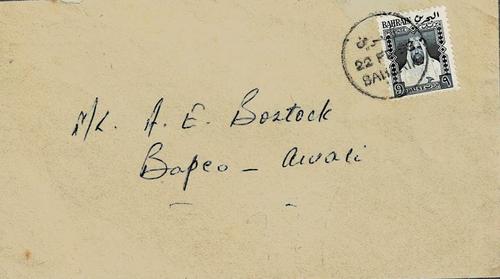 BAHRAIN البحرين
22 F
BAH
9 ٩
M/L. A. E. Bostock
Bapco - Awali